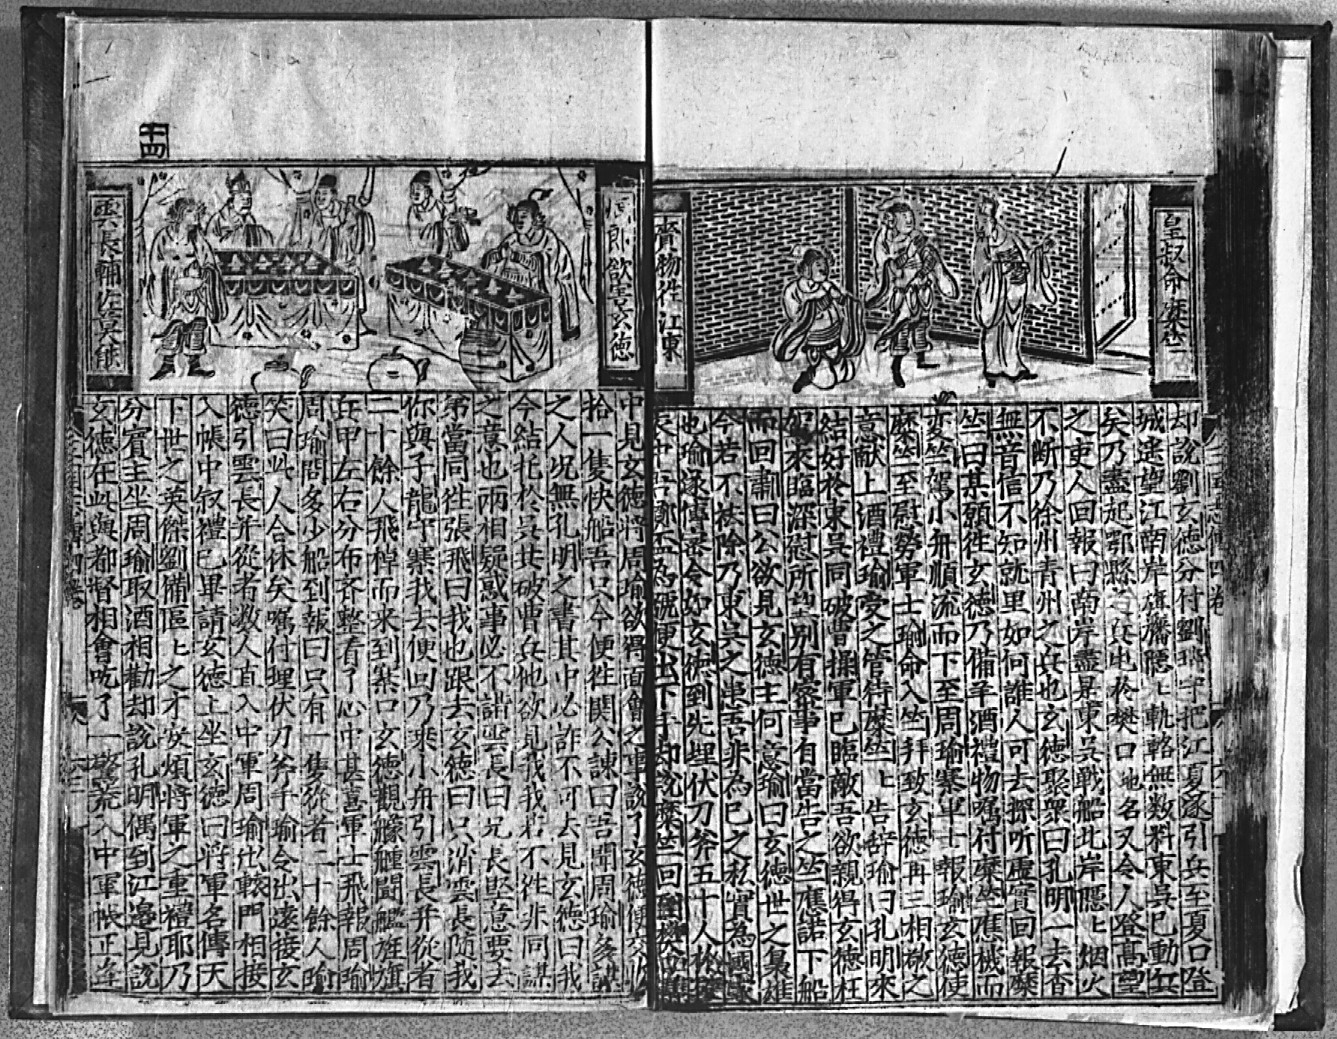 皇叔命糜竺
齎物往江東
却說劉玄德分付劉琦守把江夏遂引兵至夏口登
城遙望江南岸旗旛隱上軌輅無数料東吳已動兵
矣乃盡起鄂縣之兵屯於樊口地名又令人登高望
之吏人回報曰南岸盡是東吳戦船北岸隱上烟火
不断乃徐州青州之兵也玄德聚衆曰孔明一去杳
無音信不知就里如何誰人可去探听虛實回報糜
竺曰某願徃玄德乃備羊酒禮物囑付糜竺應械而
変竺駕小舟順流而下至周瑜寨軍士報瑜玄德使
糜竺至慰勞軍士瑜命入竺拜致玄德再三相敬之
意献上酒禮瑜受之管待糜竺上告辞瑜曰孔明來
結好於東吳同破曹操軍已臨敵吾欲親得玄德枉
駕來臨深慰所望別有密事自當告之竺應諾下船
而回肅曰公欲見玄德主何意瑜曰玄德世之梟雄
今若不袪除乃東吳之患吾非為已之私實為國家
也瑜遂傳密令如玄德到先埋伏刀斧五十人於
吾擲盃為號便出下手却說糜竺回
周郎欲害玄德
雲長輔佐莫敵
十四
中見玄德將周瑜欲得面會之事說了玄德便交收
拾一隻快船吾只今便徃関公諫曰吾聞周瑜多謀
之人况無孔明之書其中必詐不可去見玄德曰我
今結托於吳共破曹兵他欲見我我若不徃非同謀
之意也兩相疑惑事必不諧雲長曰兄長堅意要去
弟當同徃張飛曰我也跟去玄德曰只消雲長随我
你與子龍守寨我去便回乃乘小舟引雲長并從者
二十餘人飛棹而來到寨口玄德觀艨艟鬪艦旌旗
兵甲左右分布齐整看了心中甚喜軍士飛報周瑜
周瑜問多少船到報曰只有一隻從者二十餘人瑜
笑曰此人合休矣囑付埋伏刀斧手瑜令出遠接玄
德引雲長并從者数人直入中軍周瑜出轅門相接
入帳中叙禮已畢請玄德上坐玄德曰將軍名傳天
下世之英傑劉備區上之才安煩將軍之重禮耶乃
分賓主坐周瑜取酒相勸却說孔明偶到江邊見說
玄德在此與都督相會吃了一驚荒入中軍帳正逢